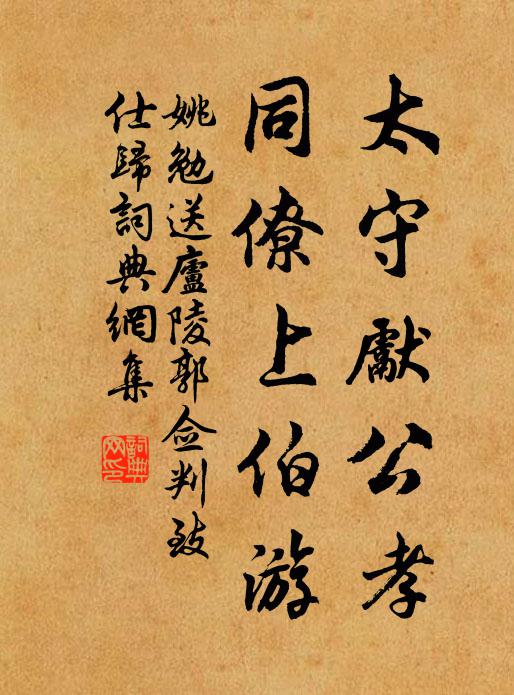 太守獻公孝
同僚上伯游
姚勉送廬陵郭僉判致
仕歸詞典網集
詞典網印